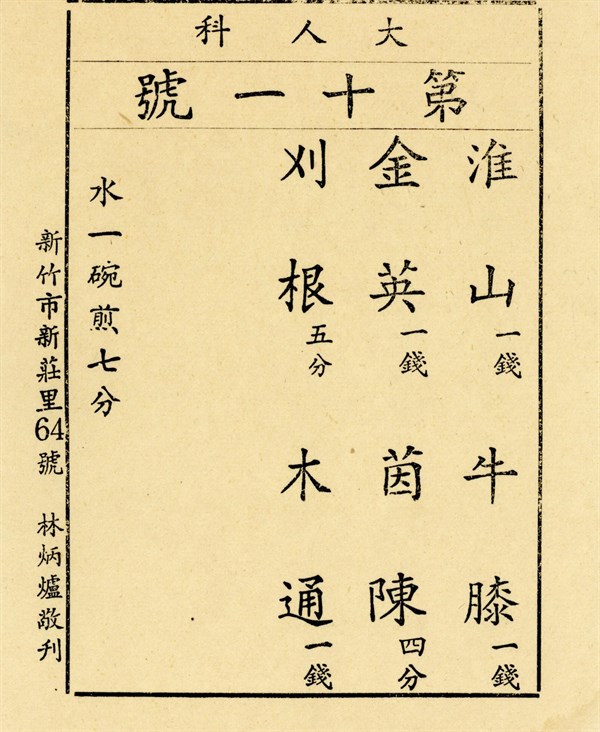 大人科
第十一號
淮山一錢 牛膝一錢
金英一錢 茵陳四分
刈根五分 木通一錢
水一碗煎七分
新竹市新莊里64號 林炳爐敬刋